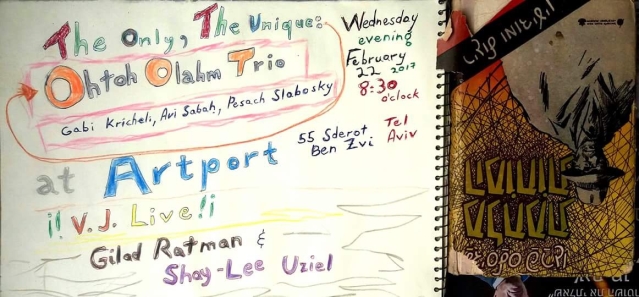 The Only, The Unique:
Ohtoh Olahm Trio
Gabi Kricheli, Avi Sabah, Pesach Slabosky
at Artport
¡! V.J. Live!¡
Gilad Ratman &
Shay-Lee Uziel
Wednesday
evening
February
22 2017
8:30
o'clock
55 Sderot
Ben Zvi
Tel
Aviv